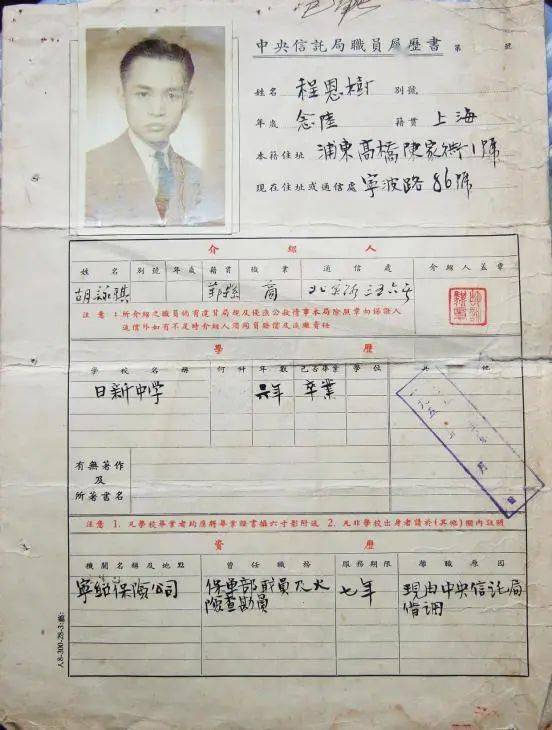 中央信託局職員履歷書 第 號
姓名 程恩樹 別號
年歲 念陸 籍貫 上海
本籍住址 浦東高橋陳家街1號
現在住址或通信處 寧波路86號
介紹人
姓名 別號 年歲 籍貫 職業 通信處 介紹人蓋章
胡詠騏 鄞縣 商
注意：1.所介紹之職員倘有違背局規及侵蝕公款情事本局除照章向保證人
追償外如有不足時介紹人須同負賠償及追繳責任
學歷
學校名稱 何科 年數 已否畢業 學位 其他
日新中学 六年 卒業
有無著作
及
所著書名
注意 1. 凡學校畢業者均應將畢業證書攝六寸影附送 2. 凡非學校出身者請於(其他)欄內註明
資歷
機關名稱及地點 曾任職務 服務期限 離職原因
寧紹保險公司 保單部职員及火 七年 現由中央信託局
險查勘員 借调